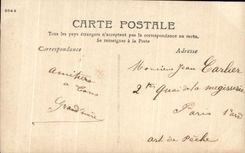 CARTE POSTALE
Tous les pays étrangers n'acceptent pas la correspondance au recto.
Se renseigner à la Poste
Correspondance
Adresse
amitiés
à tous
Monsieur Jean Carlier
2ter Quai de la mégisserie
Paris 1er
art de Pêche